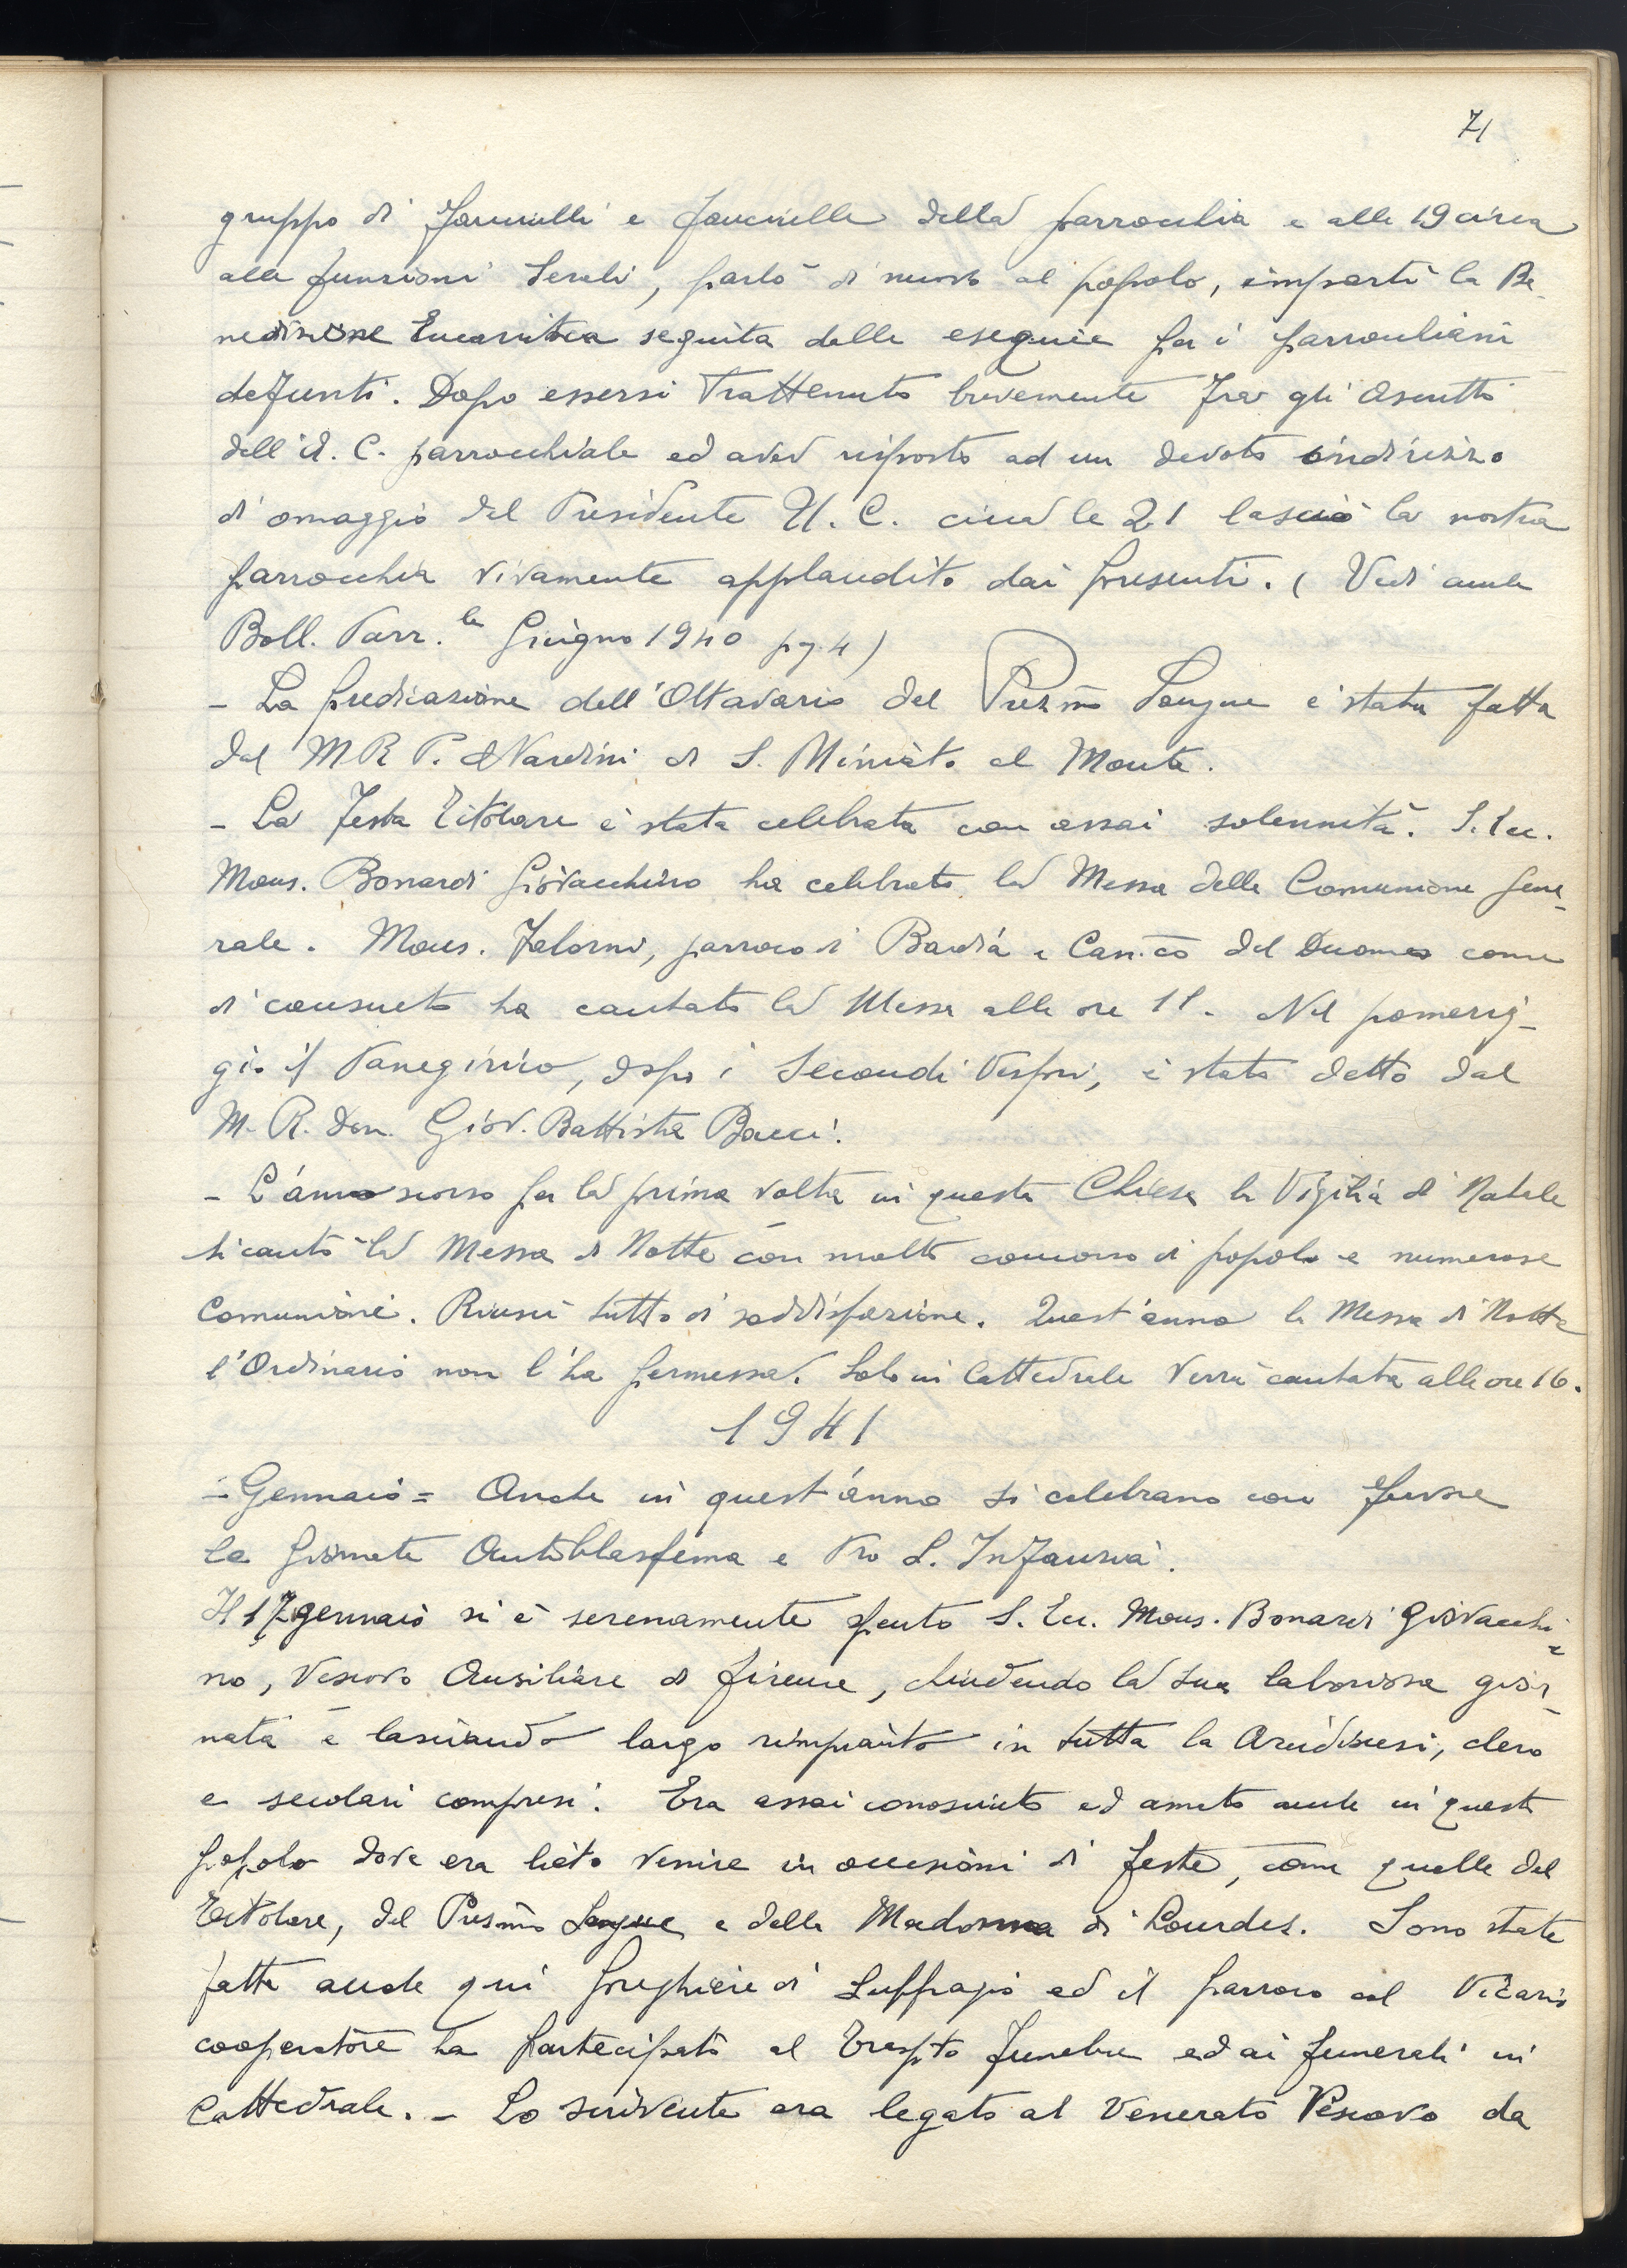 71
gruppo di fanciulli e fanciulle della parrocchia e alle 19 circa
alle funzioni serali, parlò di nuovo al popolo, impartì la Be-
nedizione Eucaristica seguita dalle esequie per i parrocchiani
defunti. Dopo essersi trattenuto brevemente fra gli ascritti
dell'A. C. parrocchiale ed aver risposto ad un devoto indirizzo
di omaggio del Presidente U. C. circa le 21 lasciò la nostra
parrocchia vivamente applaudito dai presenti. (Vedi anche
Boll. Parr.le Giugno 1940 pg. 4)
- La predicazione dell'Ottavario del Prez.mo Sangue è stata fatta
dal M R P. Nardini di S. Miniato al Monte.
- La festa Titolare è stata celebrata con assai solennità. S. Ecc.
Mons. Bonardi Giovacchino ha celebrato la Messa della Comunione Gene-
rale. Mons. Falorni, parroco di Badia e Can.co del Duomo come
di consueto ha cantato la Messa alle ore 11. Nel pomerig-
gio il Panegirico, dopo i Secondi Vespri, è stato detto dal
M. R. Don. Giov. Battista Bacci.
- L'anno scorso per la prima volta in questa Chiesa la Vigilia di Natale
si cantò la Messa di Notte con molto concorso di popolo e numerose
Comunioni. Riuscì tutto di soddisfazione. Quest'anno la Messa di Notte
l'Ordinario non l'ha permessa. Solo in Cattedrale verrà cantata alle ore 16.
1941
= Gennaio = Anche in quest'anno si celebrano con fervore
le Giornate Antiblasfema e Pro S. Infanzia.
Il 17 gennaio si è serenamente spento S. Ecc. Mons. Bonardi Giovacchi=
no, Vescovo Ausiliare di Firenze, chiudendo la sua laboriosa gior-
nata e lasciando largo rimpianto in tutta la Arcidiocesi, clero
e secolari compresi. Era assai conosciuto ed amato anche in questo
popolo dove era lieto venire in occasioni di feste, come quelle del
Titolare, del Prez.mo Sangue e della Madonna di Lourdes. Sono state
fatte anche qui preghiere di suffragio ed il parroco col Vicario
cooperatore ha partecipato al trasp.to funebre ed ai funerali in
Cattedrale. - Lo scrivente era legato al Venerato Vescovo da